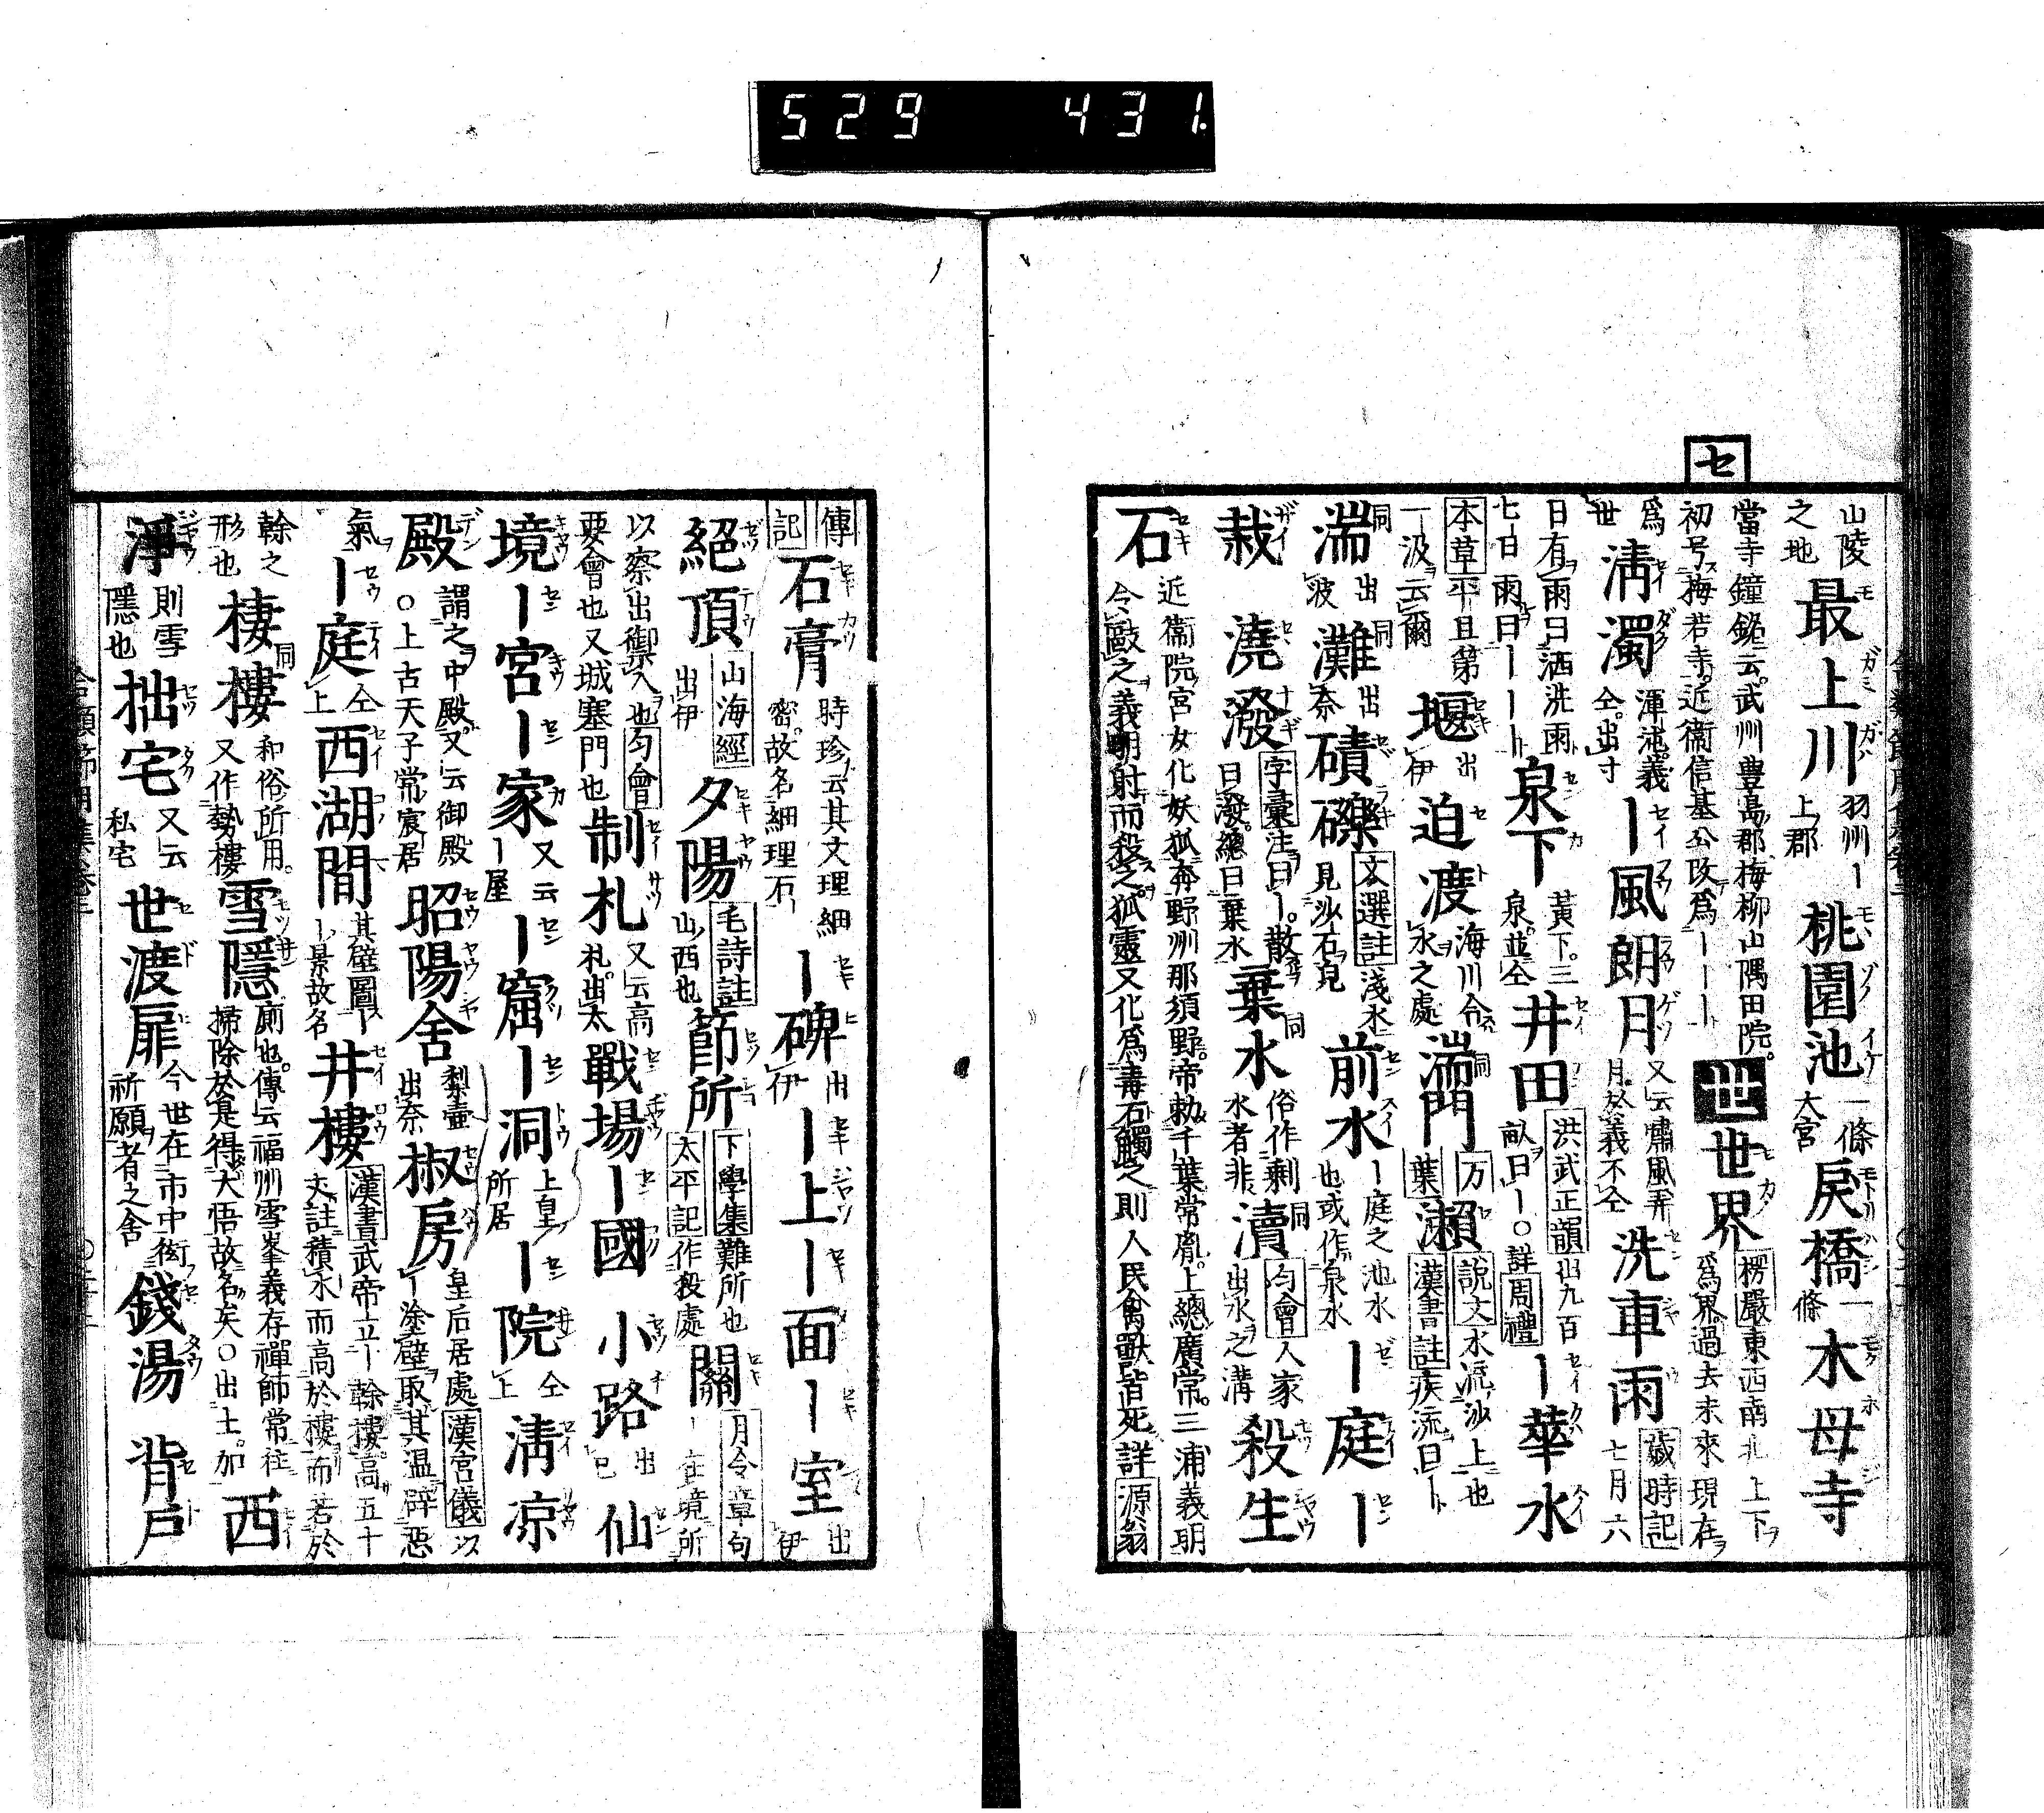 529 431.
セ
山陵之地 最上川 羽州ー上郡 桃園池 一條大宮 戻橋 一條 木母寺
當寺鐘銘云武州豊島郡梅柳山隅田院初号梅若寺近衞信基公改爲ーーー 世 世界 楞嚴東西南北上下爲界過去未來現在
爲世 淸濁 渾沌義仝出寸 ー風朗月 又云嘯風弄月然義不仝 洗車雨 歲時記七月六
日有雨曰洒洗雨七日雨曰ーーー 泉下 黃下三泉並仝 井田 洪武正韻出九百畝曰ー○詳周禮 ー華水
本草平旦第一汲云爾 堰 出伊 迫渡 海川令水之處 湍門 万葉 瀨 說文水流沙上也漢書註疾流曰ー
湍 同出波 灘 同出奈 磧礫 文選註淺水見沙石皃 前水 ー庭之池水也或作泉水 ー庭ー
栽 澆潑 字彙注曰ー散曰潑總曰棄水 棄水 同俗作剩水者非 瀆 同勻會人家出水之溝 殺生
石 近衞院宮女化妖狐奔野州那須野帝勅千葉常胤上總廣常三浦義明今敺之義明射而殺之狐靈又化爲毒石觸之則人民禽獸皆死詳源翁
傳記 石膏 時珍云其文理細密故名細理石 ー碑 出伊 ー上ー面ー室 出伊
絕頂 山海經出伊 夕陽 毛詩註山西也 節所 下學集難所也太平記作殺處 關 月令章句ー在境所
以察出御入也勻會要會也又城塞門也 制札 又云高札出太 戰場ー國 小路 出巳 仙
境ー宮ー家 又云ー屋 ー窟ー洞 上皇所居 ー院 仝上 淸凉
殿 謂之中殿又云御殿○上古天子常寢居 昭陽舍 梨壷出奈 椒房 皇后居處漢官儀以ー塗壁取其温辟惡
氣 ー庭 仝上 西湖間 其壁圖ー景故名 井樓 漢書武帝立ー幹樓高五十丈註積木而高於樓而若於
幹之形也 棲樓 同和俗所用又作勢樓 雪隱 廁也傳云福州雪峯義存禪師常往掃除於是得大悟故名矣○出土加 西
淨 則雪隱也 拙宅 又云私宅 世渡扉 今世在市中衒祈願者之舍 錢湯 背戸